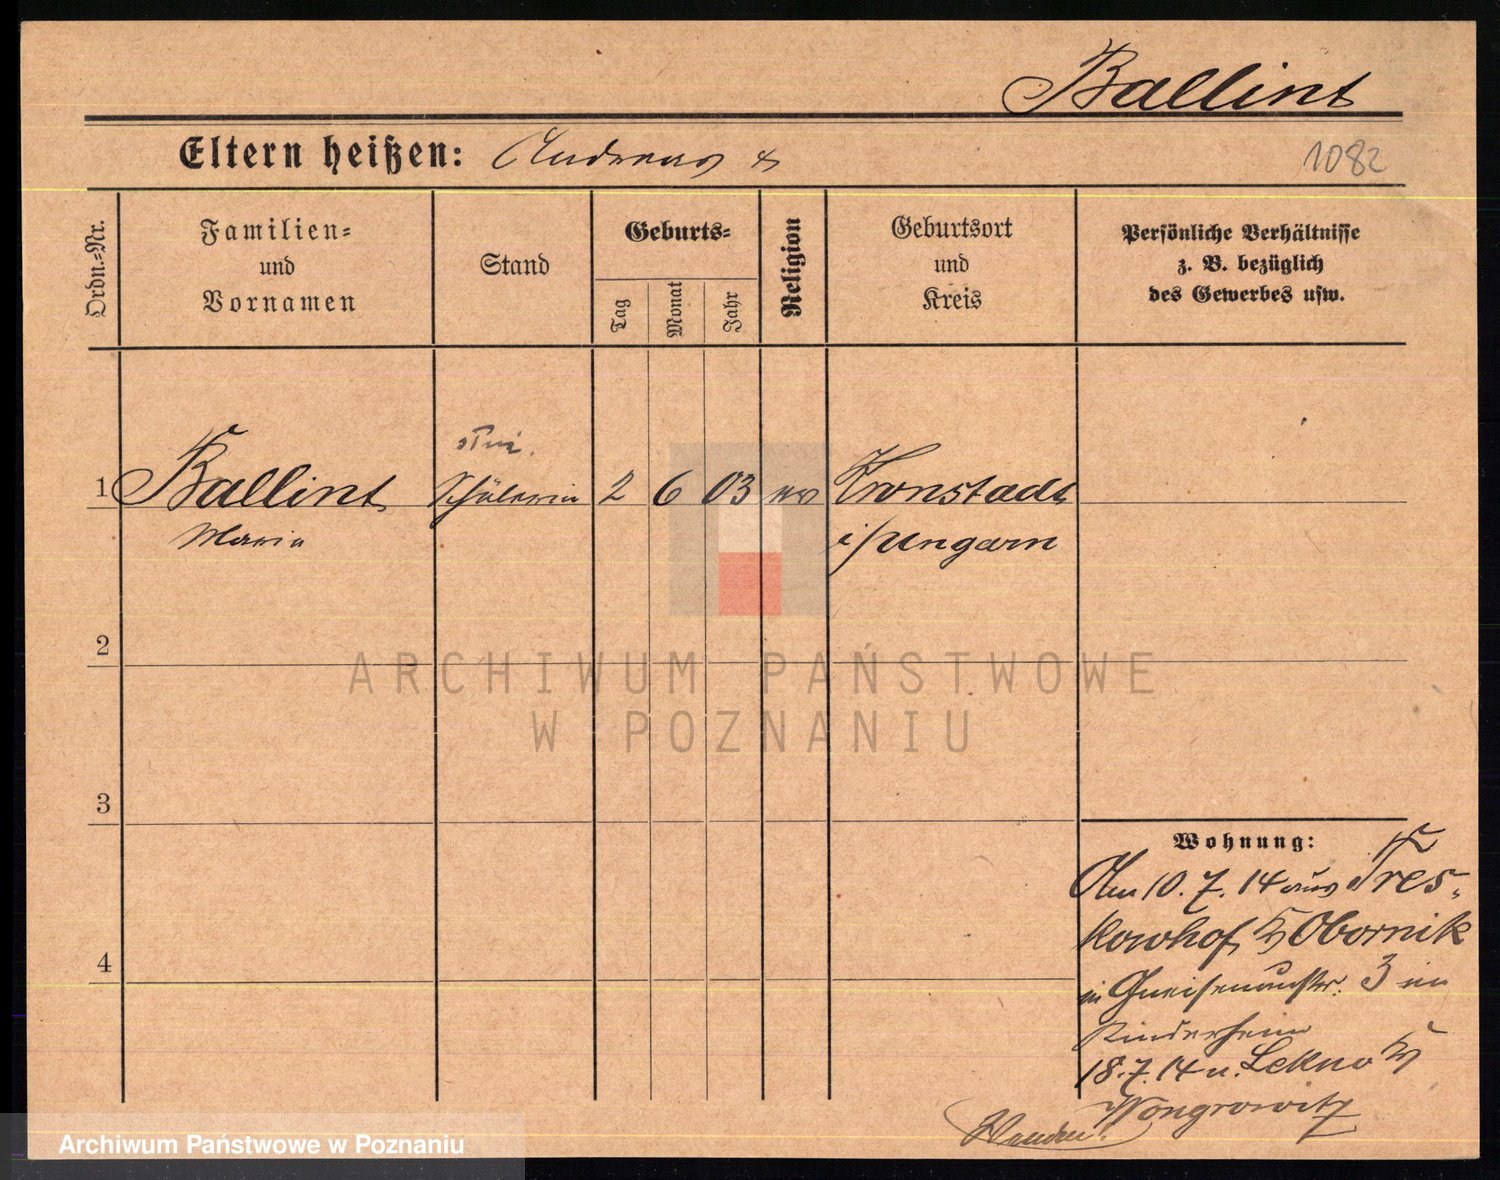 Ballint
Eltern heißen: Andreas &
1082
Ordn.-Nr.
Familien-
und
Vornamen
Stand
Geburts-
Tag
Monat
Jahr
Religion
Geburtsort
und
Kreis
Persönliche Verhältnisse
z. B. bezüglich
des Gewerbes usw.
1 Ballint Schülerin 2 6 03 ev Kronstadt
Maria i/Ungarn
2
3
4
Wohnung:
Am 10. 7. 14 aus Tres-
kowhof, K Obornik
in Gneisenaustr. 3 im
Kinderheim
18.7.14 n. Lekno K
Wongrowitz
Wenden!
ARCHIWUM PAŃSTWOWE
W POZNANIU
Archiwum Państwowe w Poznaniu